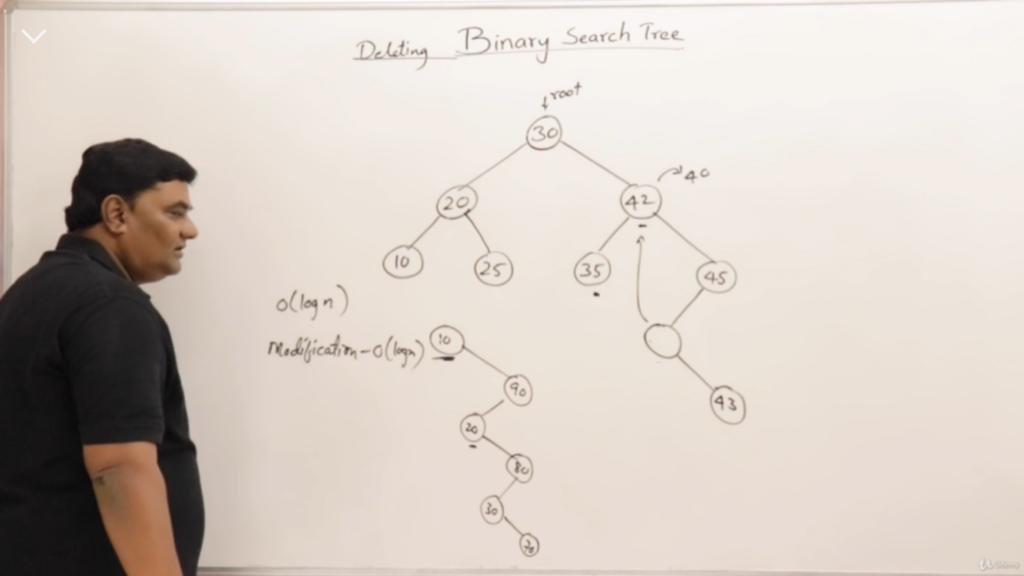 Deleting Binary Search Tree
root
30
40
20 42
10 25 35 45
O(log n)
Modification - O(logn)
10
90
43
20
80
30
Udemy